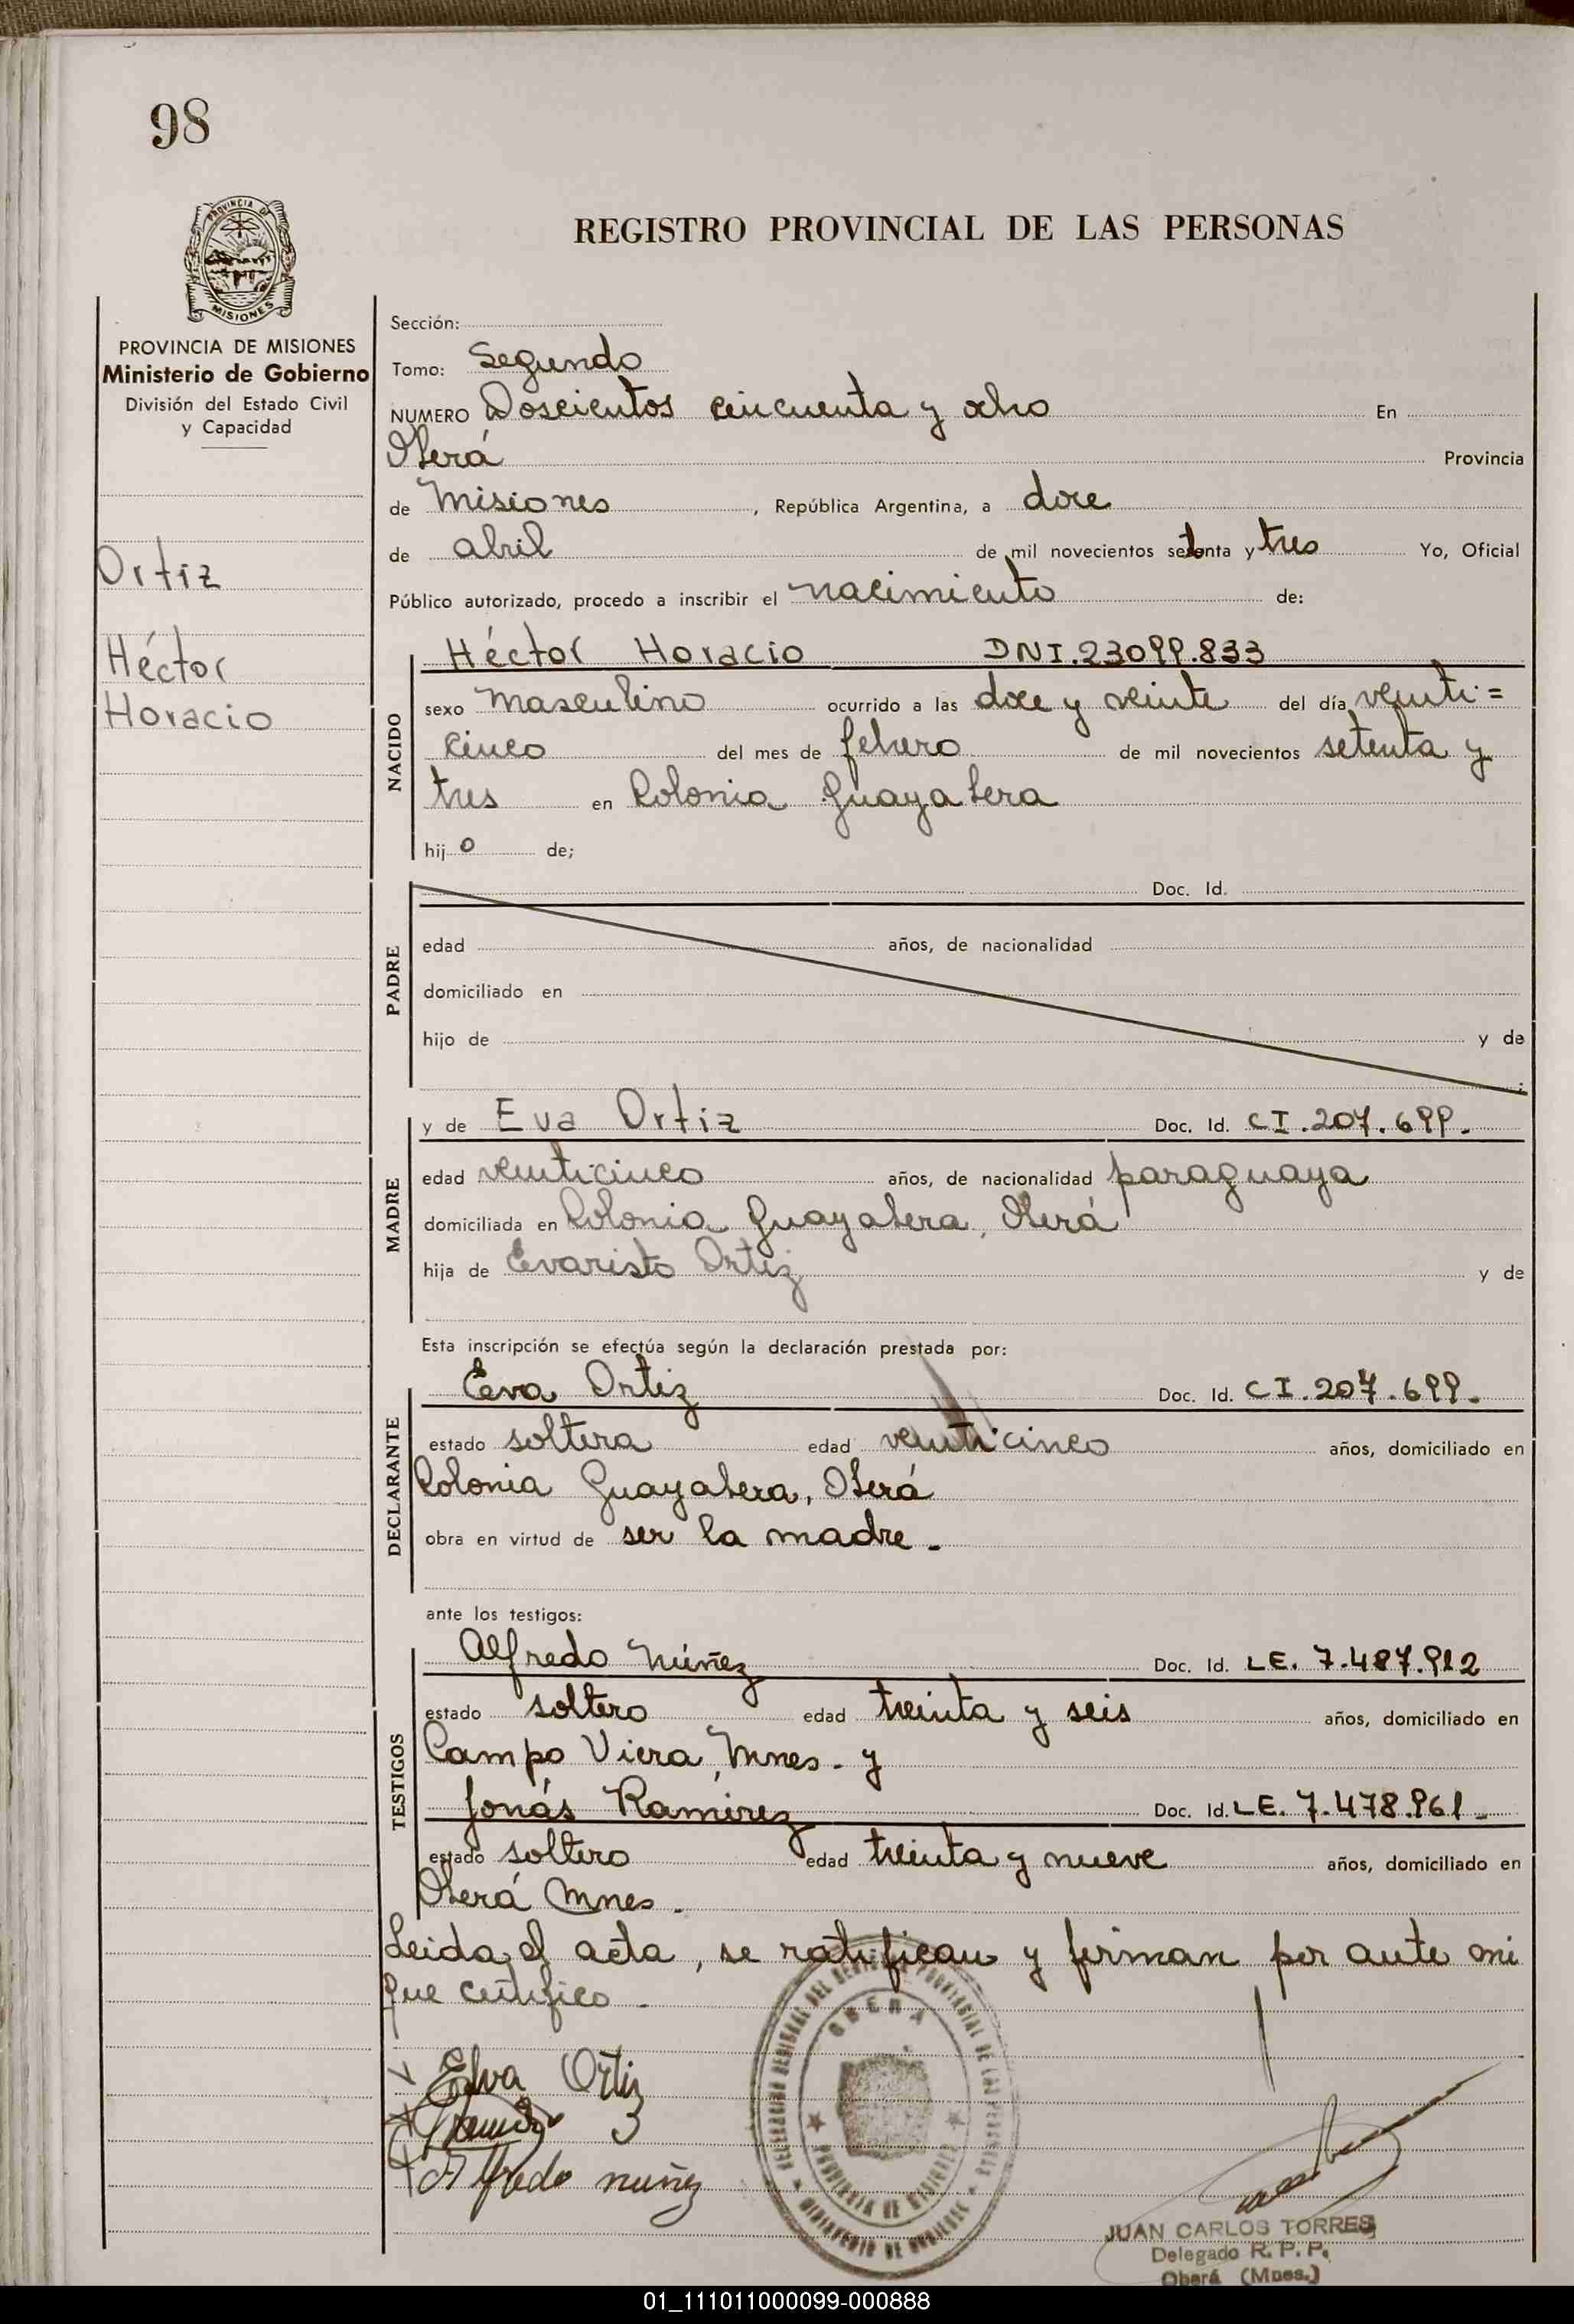 98
PROVINCIA DE
MISIONES
REGISTRO PROVINCIAL DE LAS PERSONAS
PROVINCIA DE MISIONES
Ministerio de Gobierno
División del Estado Civil
y Capacidad
Ortiz
Héctor
Horacio
Sección:
Tomo: Segundo
NUMERO Doscientos cincuenta y ocho En
Oberá Provincia
de Misiones, República Argentina, a doce
de abril de mil novecientos setenta y tres Yo, Oficial
Público autorizado, procedo a inscribir el nacimiento de:
NACIDO
Héctor Horacio DNI.23099.833
sexo masculino ocurrido a las doce y veinte del día veinti=
cinco del mes de febrero de mil novecientos setenta y
tres en Colonia Guayabera
hijo de;
PADRE
Doc. Id.
edad años, de nacionalidad
domiciliado en
hijo de y de
;
MADRE
y de Eva Ortiz Doc. Id. CI.207.699.
edad veinticinco años, de nacionalidad paraguaya
domiciliada en Colonia Guayabera, Oberá
hija de Evaristo Ortiz y de
Esta inscripción se efectúa según la declaración prestada por:
DECLARANTE
Eva Ortiz Doc. Id. CI.207.699.
estado soltera edad veinticinco años, domiciliado en
Colonia Guayabera, Oberá
obra en virtud de ser la madre.
ante los testigos:
TESTIGOS
Alfredo Núñez Doc. Id. LE. 7.487.912
estado soltero edad treinta y seis años, domiciliado en
Campo Viera, Mnes. y
Jonás Ramírez Doc. Id. LE. 7.478.961.
estado soltero edad treinta y nueve años, domiciliado en
Oberá Mnes.
Leida el acta, se ratifican y firman por ante mi
que certifico.
Ortiz
Alfredo nuñez
OBERA
PROVINCIA DE MISIONES
JUAN CARLOS TORRES
Delegado R. P. P.
Oberá (Mnes.)
01_111011000099-000888